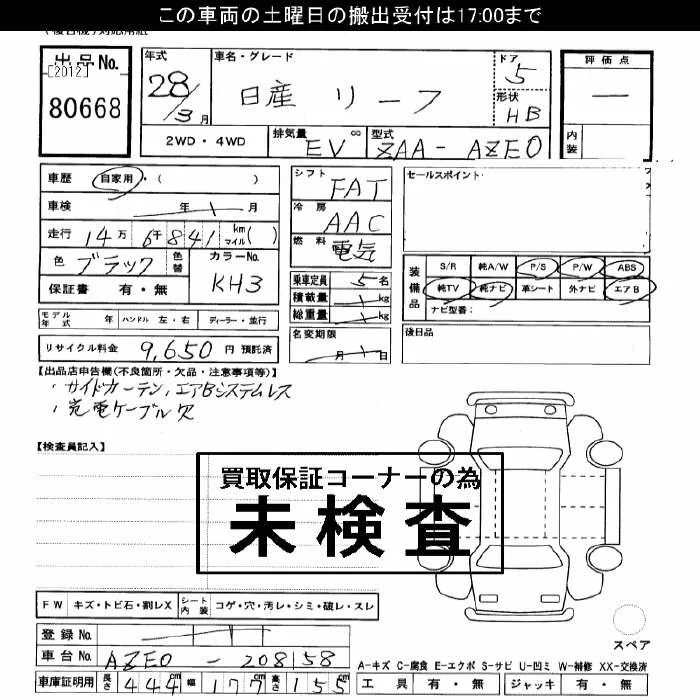 この車両の土曜日の搬出受付は17:00まで
出品No. [2012] 80668
年式 28/3月
車名・グレード 日産 リーフ
ドア 5
形状 HB
評価点 —
内装
2WD・4WD 排気量 EV cc 型式 ZAA-AZE0
車歴 自家用・( )
車検 年 / 月
走行 14万6千841 km マイル( )
色 ブラック 色替 カラーNo. KH3
保証書 有・無
モデル年式 年 ハンドル 左・右 ディーラー・並行
リサイクル料金 9,650 円 預託済
シフト FAT
冷房 AAC
燃料 電気
乗車定員 5名
積載量 / kg
総重量 / kg
名変期限 月 / 日
セールスポイント・
装備品 S/R 純A/W P/S P/W ABS
純TV 純ナビ 革シート 外ナビ エアB
ナビ型番:
後日品
【出品店申告欄(不良箇所・欠品・注意事項等)】
・サイドカーテン,エアBシステムレス
・充電ケーブル欠
【検査員記入】
買取保証コーナーの為
未検査
FW キズ・トビ石・割レX シート内装 コゲ・穴・汚レ・シミ・破レ・スレ
登録No.
車台No. AZE0-208158
車庫証明用 長さ 444cm 幅 177cm 高さ 155cm
スペア
A-キズ C-腐食 E-エクボ S-サビ U-凹ミ W-補修 XX-交換済
工具 有・無 ジャッキ 有・無